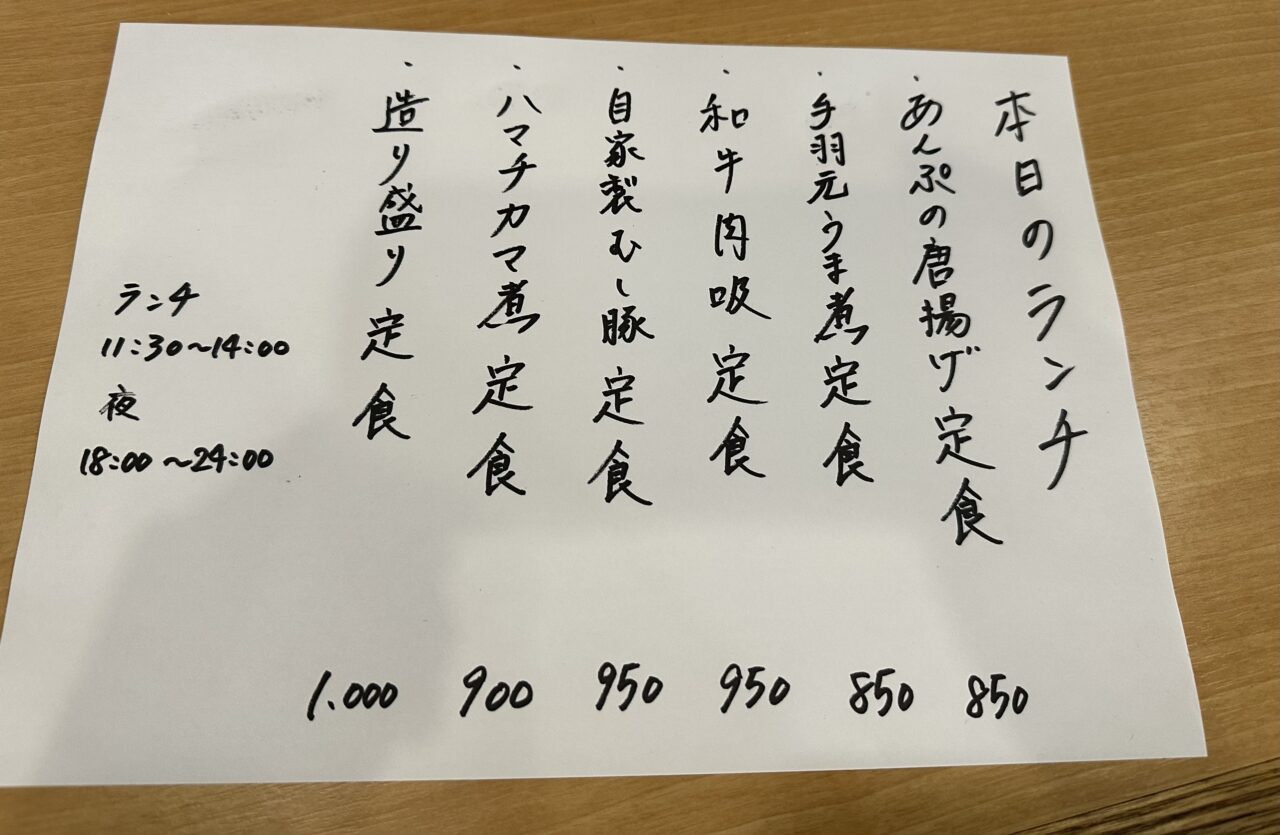 本日のランチ
・あんぷの唐揚げ定食 850
・手羽元うま煮定食 850
・和牛肉吸定食 950
・自家製むし豚定食 950
・ハマチカマ煮定食 900
・造り盛り定食 1.000
ランチ
11:30〜14:00
夜
18:00〜24:00